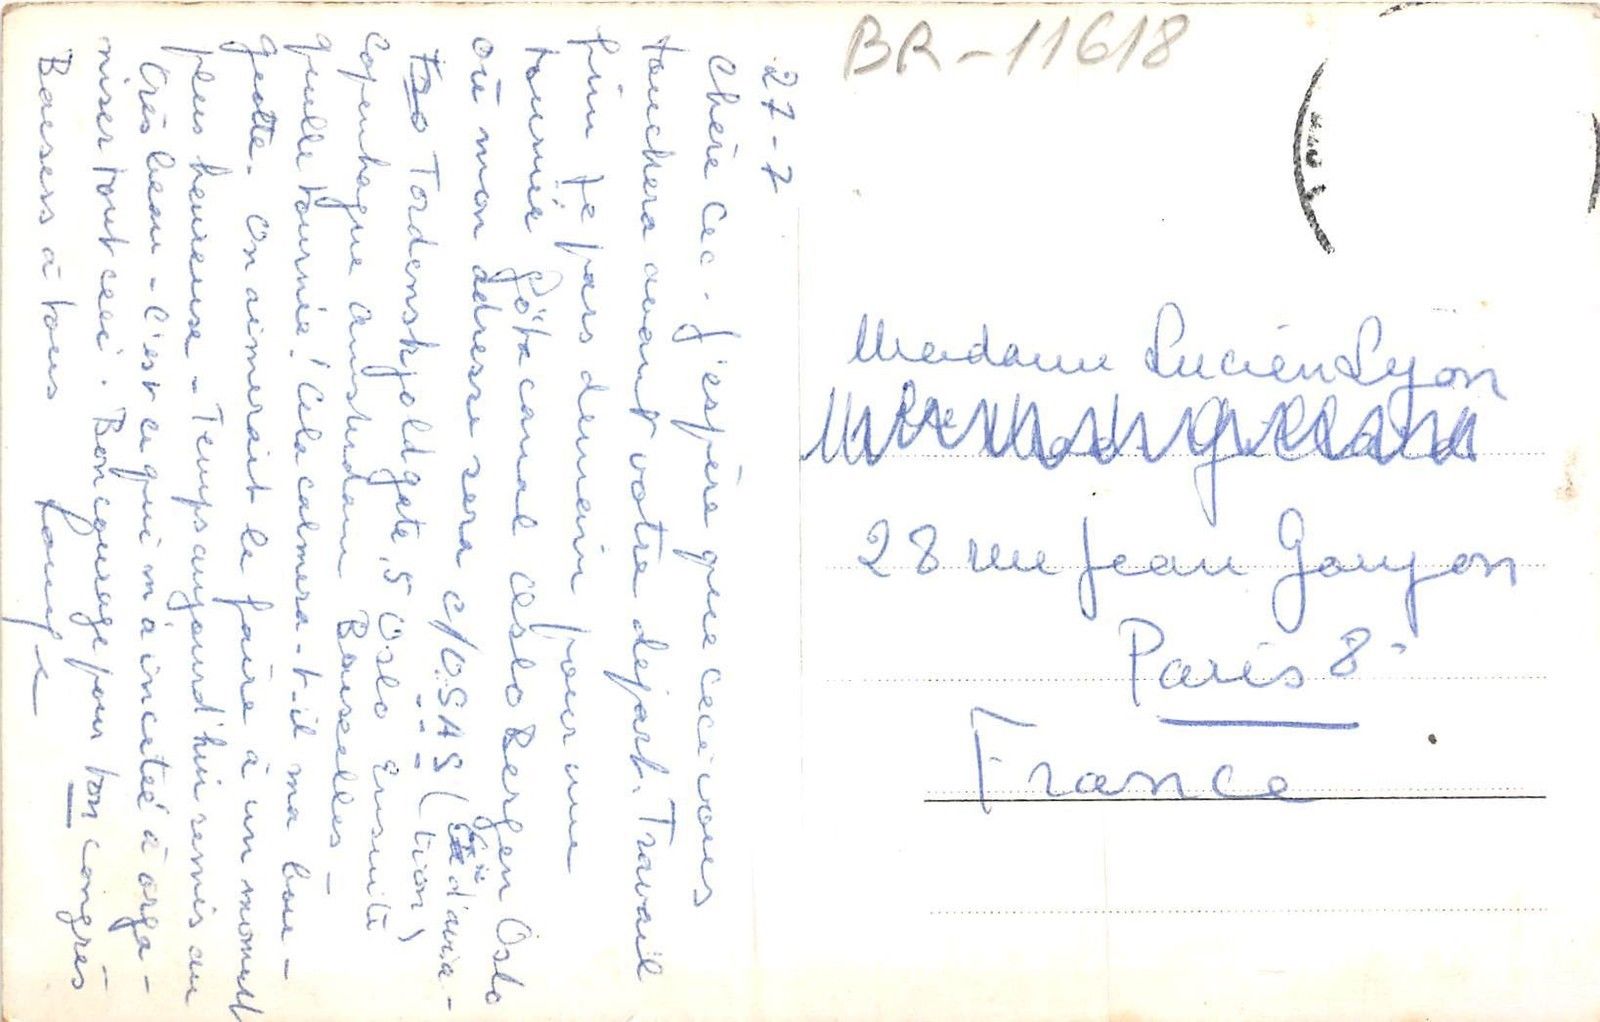 BR-11618
27-7
Chère Cec. J'espère que ceci vous
touchera avant votre départ. Travail
fini je pars demain pour une
tournée Göta canal Oslo Bergen Oslo
où mon adresse sera c/o S A S (Cie d'avia-
tion)
Tordenskjoldgate, 5 Oslo Ensuite
Copenhague Amsterdam Bruxelles -
quelle tournée! Cela calmera-t-il ma bou-
geotte. On aimerait le faire à un moment
plus heureuse - Temps aujourd'hui remis au
très beau - C'est ce qui m'a incitée à orga-
niser tout ceci. Bon courage pour ton congrès
Baisers à tous
Madame Lucien Lyon
28 rue Jean Goujon
Paris 8e
France